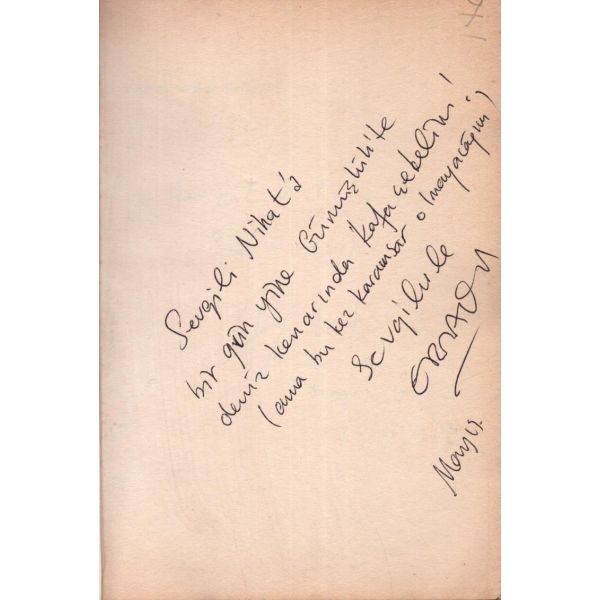 Sevgili Nihat'a
bir gün yine Gümüşlük'te
deniz kenarında kafa çekelim!
(ama bu kez karamsar olmayacağım)
Sevgilerle
Mayıs